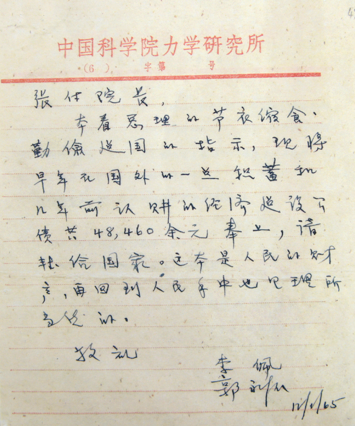 中国科学院力学研究所
(6) 字第 号
张付院长，
本着总理的节衣缩食、
勤俭建国的指示，现将
早年在国外的一点积蓄和
几年前认购的经济建设公
债共48,460余元奉上，请
转给国家。这本是人民的财
产，再回到人民手中也是理所
当然的。
敬礼
李佩
郭永怀
12/1/65